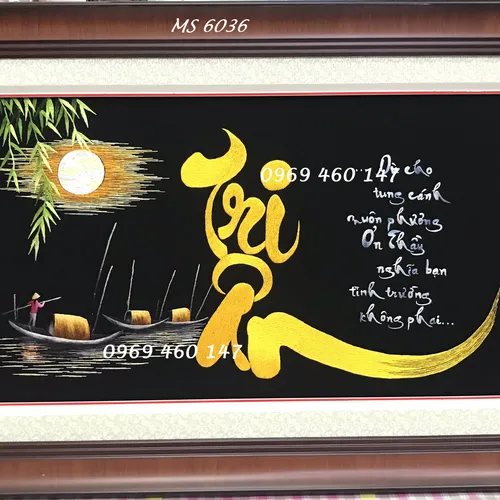 MS 6036
Tri
Ân
0969 460 147
Dù cho
tung cánh
muôn phương
Ơn Thầy
nghĩa bạn
tình trường
không phai...
0969 460 147